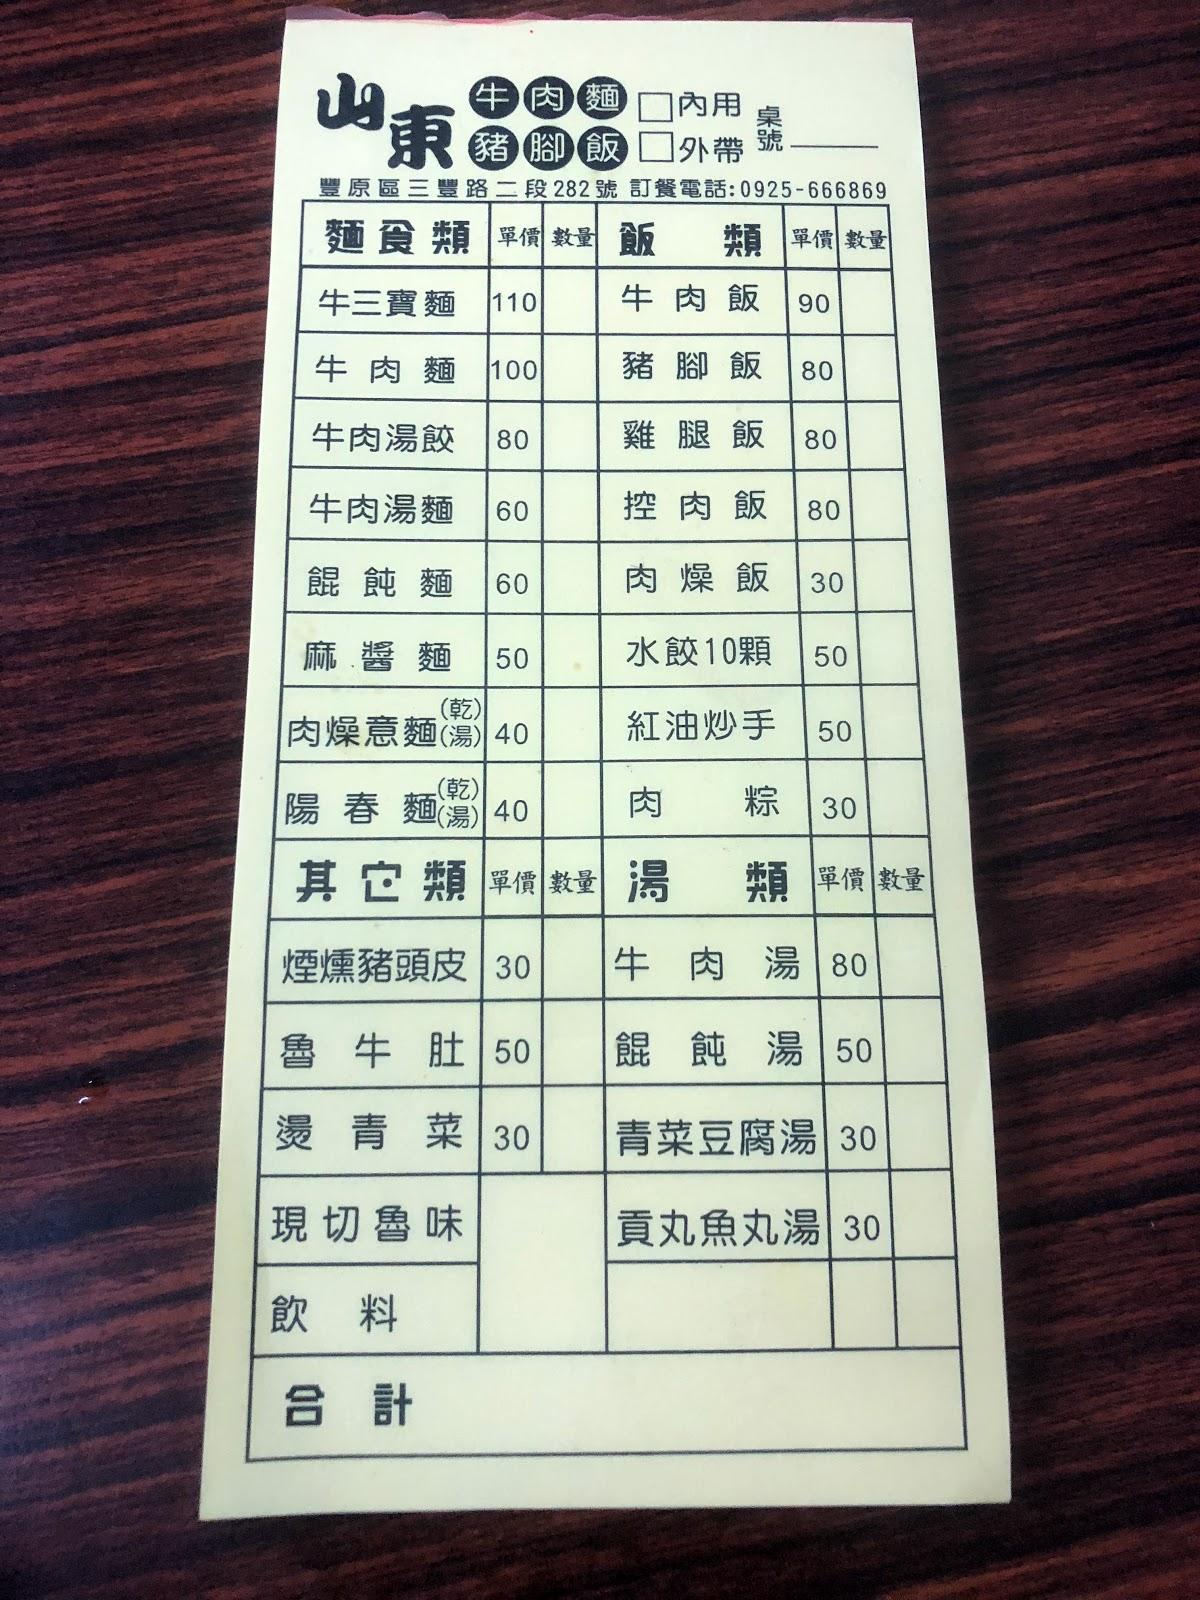 山東 牛肉麵 豬腳飯 □內用 □外帶 桌號
豐原區三豐路二段282號 訂餐電話:0925-666869
麵食類 單價 數量 飯類 單價 數量
牛三寶麵 110 牛肉飯 90
牛肉麵 100 豬腳飯 80
牛肉湯餃 80 雞腿飯 80
牛肉湯麵 60 控肉飯 80
餛飩麵 60 肉燥飯 30
麻醬麵 50 水餃10顆 50
肉燥意麵(乾)(湯) 40 紅油炒手 50
陽春麵(乾)(湯) 40 肉粽 30
其它類 單價 數量 湯類 單價 數量
煙燻豬頭皮 30 牛肉湯 80
魯牛肚 50 餛飩湯 50
燙青菜 30 青菜豆腐湯 30
現切魯味 貢丸魚丸湯 30
飲料
合計